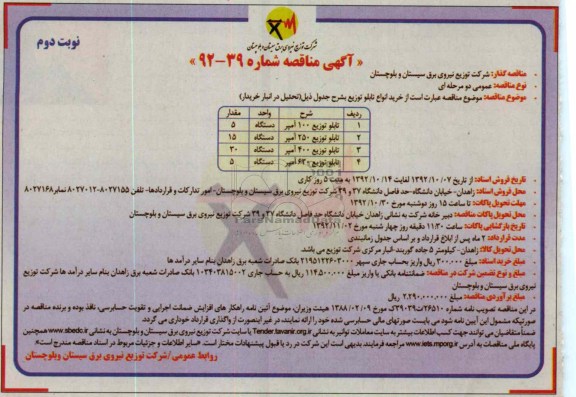 شرکت توزیع نیروی برق سیستان و بلوچستان
نوبت دوم
« آگهی مناقصه شماره ۳۹-۹۲ »
مناقصه گذار: شرکت توزیع نیروی برق سیستان و بلوچستان
نوع مناقصه: عمومی دو مرحله ای
موضوع مناقصه: موضوع مناقصه عبارت است از خرید انواع تابلو توزیع بشرح جدول ذیل (تحلیل در انبار خریدار)
ردیف شرح واحد مقدار
۱ تابلو توزیع ۱۰۰ آمپر دستگاه ۵
۲ تابلو توزیع ۲۵۰ آمپر دستگاه ۱۵
۳ تابلو توزیع ۴۰۰ آمپر دستگاه ۳۰
۴ تابلو توزیع ۶۳۰ آمپر دستگاه ۵
تاریخ فروش اسناد: از تاریخ ۱۳۹۲/۱۰/۰۷ لغایت ۱۳۹۲/۱۰/۱۴ به مدت ۵ روز کاری
محل فروش اسناد: زاهدان- خیابان دانشگاه- حد فاصل دانشگاه ۳۷ و ۳۹ شرکت توزیع نیروی برق سیستان و بلوچستان- امور تدارکات و قراردادها- تلفن ۸۰۲۷۱۵۵-۸۰۲۷۰۱۲ نمابر ۸۰۲۷۱۶۸
مهلت تحویل پاکات: تا ساعت ۱۵ روز دوشنبه مورخ ۱۳۹۲/۱۰/۳۰
محل تحویل پاکات مناقصه: دبیر خانه شرکت به نشانی زاهدان خیابان دانشگاه حد فاصل دانشگاه ۳۷ و ۳۹ شرکت توزیع نیروی برق سیستان و بلوچستان
تاریخ بازگشایی پاکات: ساعت ۱۱:۳۰ دقیقه روز چهار شنبه مورخ ۱۳۹۲/۱۱/۰۲
مدت قرارداد: ۲ ماه پس از ابلاغ قرارداد و بر اساس جدول زمانبندی
محل تحویل کالا: زاهدان- کیلومتر ۵ جاده گوربند- انبار مرکزی شرکت توزیع می باشد
مبلغ خرید اسناد: مبلغ ۳۰۰،۰۰۰ ریال واریز بحساب جاری سپهر ۲۱۹۵۱۲۲۶۰۳۰۰۰ بانک صادرات شعبه برق زاهدان بنام سایر درآمد ها
مبلغ و نوع تضمین شرکت در مناقصه: ضمانتنامه بانکی یا واریز مبلغ ۱۱۴،۵۰۰،۰۰۰ ریال به حساب جاری ۱۰۳۴۰۳۸۱۵۰۰۲ بانک صادرات شعبه برق زاهدان بنام سایر درآمد ها شرکت توزیع
نیروی برق سیستان و بلوچستان
مبلغ برآوردی مناقصه: مبلغ ۲،۲۹۰،۰۰۰،۰۰۰ ریال
در این مناقصه تصویب نامه شماره ۲۶۵۱۰/ت۳۹۰۳۹ک مورخ ۱۳۸۸/۰۲/۰۹ هیئت وزیران، موضوع آئین نامه راهکار های افزایش ضمانت اجرایی و تقویت حسابرسی، نافذ بوده و برنده مناقصه در
صورتیکه مشمول این آیین نامه شود می بایست صورتهای مالی حسابرسی شده خود را ارائه نمایند، در غیر اینصورت از واگذاری قرارداد خودداری می گردد
ضمناً متقاضیان می توانند جهت کسب اطلاعات بیشتر به سایت معاملات توانیر به نشانی Tender.tavanir.org.ir یا سایت شرکت توزیع نیروی برق سیستان و بلوچستان به نشانی www.sbedc.ir همچنین
پایگاه ملی مناقصات به آدرس www.iets.mporg.ir مراجعه فرمایند بدیهی است این شرکت در رد یا قبول پیشنهادات مختار است. «سایر اطلاعات و جزئیات مربوط در اسناد مناقصه مندرج است».
روابط عمومی/ شرکت توزیع نیروی برق سیستان وبلوچستان